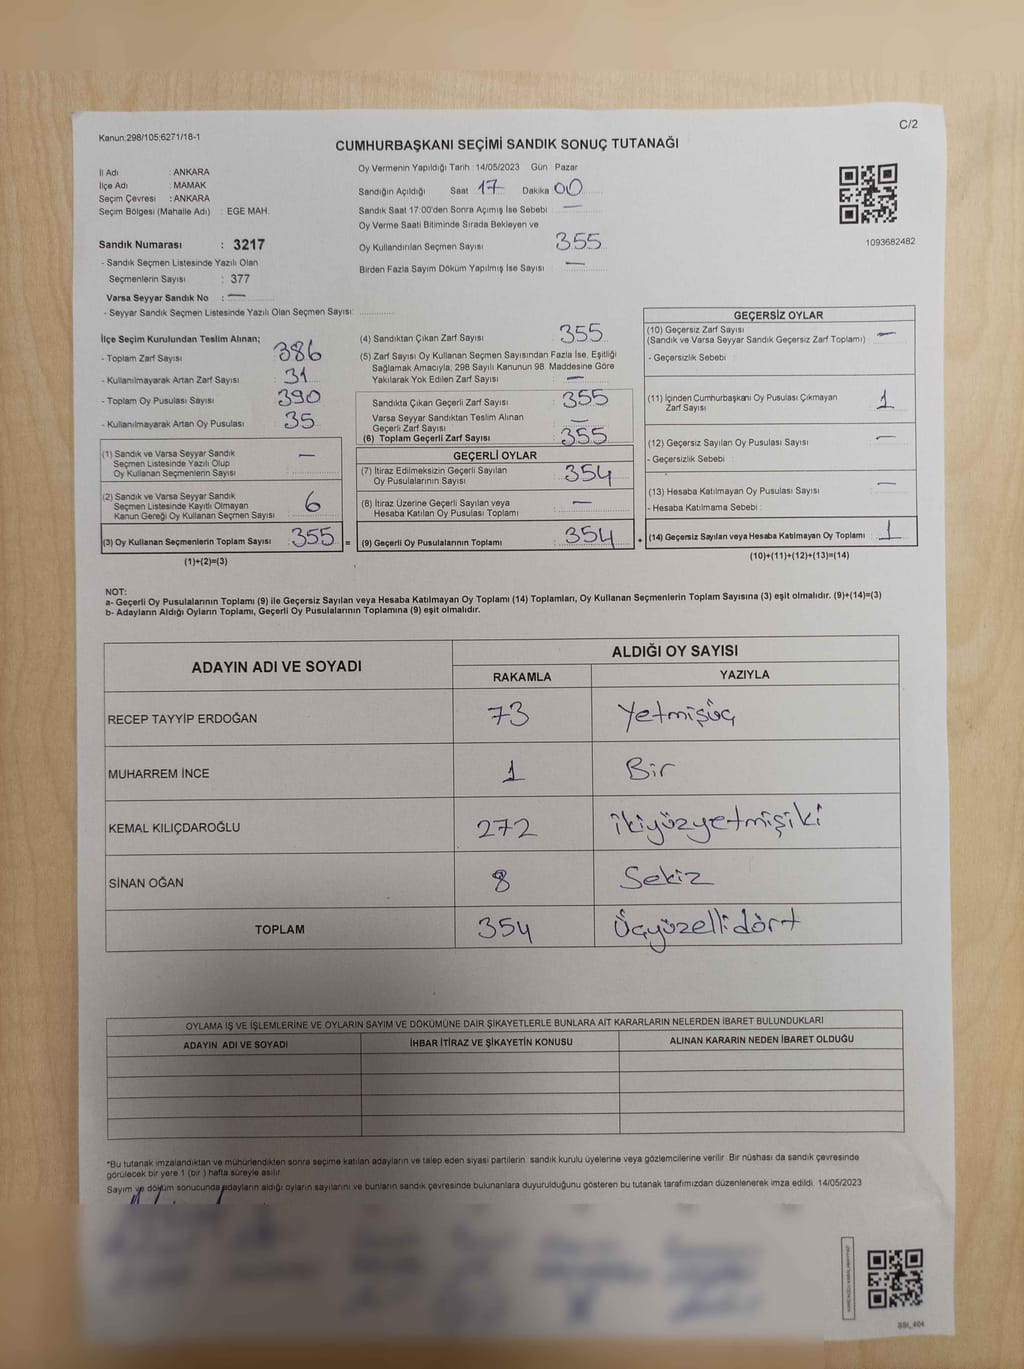 C/2
Kanun:298/105;6271/18-1
CUMHURBAŞKANI SEÇİMİ SANDIK SONUÇ TUTANAĞI
İl Adı : ANKARA
İlçe Adı : MAMAK
Seçim Çevresi : ANKARA
Seçim Bölgesi (Mahalle Adı) : EGE MAH.
Sandık Numarası : 3217
- Sandık Seçmen Listesinde Yazılı Olan
Seçmenlerin Sayısı : 377
Varsa Seyyar Sandık No : —
- Seyyar Sandık Seçmen Listesinde Yazılı Olan Seçmen Sayısı:
Oy Vermenin Yapıldığı Tarih : 14/05/2023 Gün : Pazar
Sandığın Açıldığı Saat 17 Dakika 00
Sandık Saat 17:00'den Sonra Açımış İse Sebebi : —
Oy Verme Saati Bitiminde Sırada Bekleyen ve
Oy Kullandırılan Seçmen Sayısı 355
Birden Fazla Sayım Döküm Yapılmış İse Sayısı : —
1093682482
İlçe Seçim Kurulundan Teslim Alınan;
- Toplam Zarf Sayısı : 386
- Kullanılmayarak Artan Zarf Sayısı : 31
- Toplam Oy Pusulası Sayısı : 390
- Kullanılmayarak Artan Oy Pusulası : 35
(1) Sandık ve Varsa Seyyar Sandık
Seçmen Listesinde Yazılı Olup
Oy Kullanan Seçmenlerin Sayısı : —
(2) Sandık ve Varsa Seyyar Sandık
Seçmen Listesinde Kayıtlı Olmayan
Kanun Gereği Oy Kullanan Seçmen Sayısı : 6
(3) Oy Kullanan Seçmenlerin Toplam Sayısı : 355 =
(1)+(2)=(3)
(4) Sandıktan Çıkan Zarf Sayısı : 355
(5) Zarf Sayısı Oy Kullanan Seçmen Sayısından Fazla İse, Eşitliği
Sağlamak Amacıyla, 298 Sayılı Kanunun 98. Maddesine Göre
Yakılarak Yok Edilen Zarf Sayısı : —
Sandıkta Çıkan Geçerli Zarf Sayısı : 355
Varsa Seyyar Sandıktan Teslim Alınan
Geçerli Zarf Sayısı : —
(6) Toplam Geçerli Zarf Sayısı : 355
GEÇERLİ OYLAR
(7) İtiraz Edilmeksizin Geçerli Sayılan
Oy Pusulalarının Sayısı : 354
(8) İtiraz Üzerine Geçerli Sayılan veya
Hesaba Katılan Oy Pusulası Toplamı : —
(9) Geçerli Oy Pusulalarının Toplamı : 354 +
GEÇERSİZ OYLAR
(10) Geçersiz Zarf Sayısı
(Sandık ve Varsa Seyyar Sandık Geçersiz Zarf Toplamı) : —
- Geçersizlik Sebebi :
(11) İçinden Cumhurbaşkanı Oy Pusulası Çıkmayan
Zarf Sayısı : 1
(12) Geçersiz Sayılan Oy Pusulası Sayısı : —
- Geçersizlik Sebebi :
(13) Hesaba Katılmayan Oy Pusulası Sayısı : —
- Hesaba Katılmama Sebebi :
(14) Geçersiz Sayılan veya Hesaba Katılmayan Oy Toplamı : 1
(10)+(11)+(12)+(13)=(14)
NOT:
a- Geçerli Oy Pusulalarının Toplamı (9) ile Geçersiz Sayılan veya Hesaba Katılmayan Oy Toplamı (14) Toplamları, Oy Kullanan Seçmenlerin Toplam Sayısına (3) eşit olmalıdır. (9)+(14)=(3)
b- Adayların Aldığı Oyların Toplamı, Geçerli Oy Pusulalarının Toplamına (9) eşit olmalıdır.
ADAYIN ADI VE SOYADI ALDIĞI OY SAYISI
RAKAMLA YAZIYLA
RECEP TAYYİP ERDOĞAN 73 Yetmişüç
MUHARREM İNCE 1 Bir
KEMAL KILIÇDAROĞLU 272 ikiyüzyetmişiki
SİNAN OĞAN 8 Sekiz
TOPLAM 354 Üçyüzellidört
OYLAMA İŞ VE İŞLEMLERİNE VE OYLARIN SAYIM VE DÖKÜMÜNE DAİR ŞİKAYETLERLE BUNLARA AİT KARARLARIN NELERDEN İBARET BULUNDUKLARI
ADAYIN ADI VE SOYADI İHBAR İTİRAZ VE ŞİKAYETİN KONUSU ALINAN KARARIN NEDEN İBARET OLDUĞU
*Bu tutanak imzalandıktan ve mühürlendikten sonra seçime katılan adayların ve talep eden siyasi partilerin sandık kurulu üyelerine veya gözlemcilerine verilir. Bir nüshası da sandık çevresinde
görülecek bir yere 1 (bir ) hafta süreyle asılır.
Sayım ve döküm sonucunda adayların aldığı oyların sayılarını ve bunların sandık çevresinde bulunanlara duyurulduğunu gösteren bu tutanak tarafımızdan düzenlenerek imza edildi. 14/05/2023